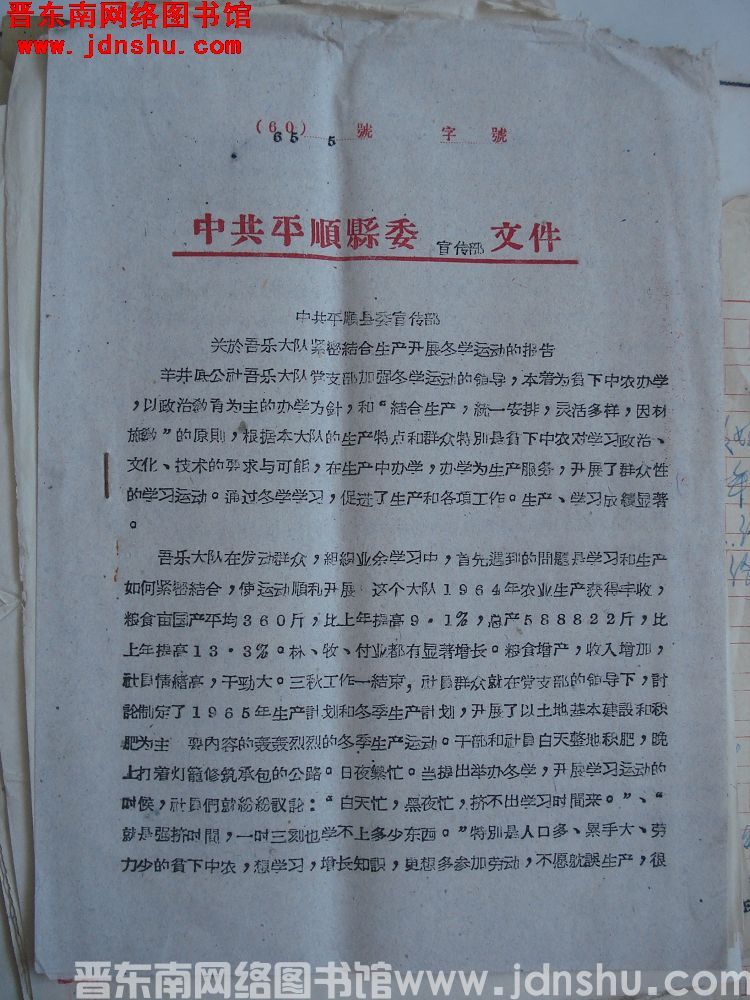 晋东南网络图书馆
www.jdnshu.com
(60) 號 字 號
65 5
中共平順縣委 宣传部 文件
中共平顺县委宣传部
关於吾乐大队紧密結合生产开展冬学运动的报告
羊井底公社吾乐大队党支部加强冬学运动的领导，本着为貧下中农办学
，以政治教育为主的办学方針，和“結合生产，統一安排，灵活多样，因材
施教”的原則，根据本大队的生产特点和群众特别是貧下中农对学习政治、
文化、技术的要求与可能，在生产中办学，办学为生产服务，开展了群众性
的学习运动。通过冬学学习，促进了生产和各項工作。生产、学习成績显著
。
吾乐大队在发动群众，組织业余学习中，首先遇到的問題是学习和生产
如何紧密結合，使运动順利开展 这个大队1964年农业生产获得丰收，
粮食亩产平均360斤，比上年提高9·1%，总产588822斤，比
上年提高13·3%。林、牧、付业都有显著增长。粮食增产，收入增加，
社員情緒高，干勁大。三秋工作一結束，社員群众就在党支部的領导下，討
論制定了1965年生产計划和冬季生产計划，开展了以土地基本建設和积
肥为主 要内容的轰轰烈烈的冬季生产运动。干部和社員白天整地积肥，晚
上打着灯籠修筑承包的公路。日夜繁忙。当提出举办冬学，开展学习运动的
时候，社員們就紛紛議論：“白天忙，黑夜忙，挤不出学习时間来。”、“
就是强挤时間，一时三刻也学不上多少东西。”特別是人口多、累手大、劳
力少的貧下中农，想学习，增长知識，更想多参加劳动，不愿就誤生产，很
晋东南网络图书馆www.jdnshu.com